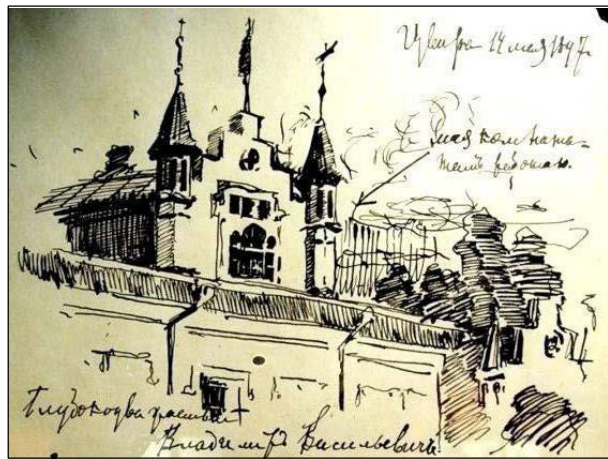 14 мая 1897.
моя комната
работаю.
Глубокоуважаемый
Владимиръ Васильевичъ!